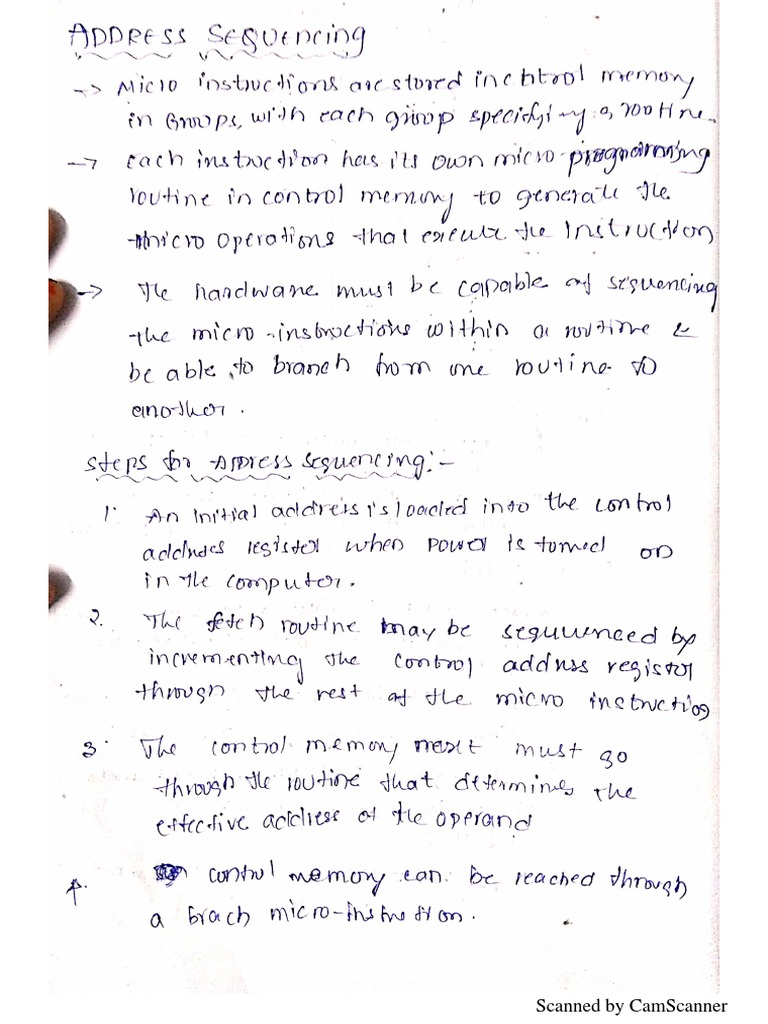 ADDRESS Sequencing
-> Micro instructions are stored in control memory
in Groups, with each group specifying a routine.
-> each instruction has its own micro programming
routine in control memory to generate the
micro operations that execute the instruction
-> The hardware must be capable of sequencing
the micro-instructions within a routine &
be able to branch from one routine to
another.
Steps for Address sequencing:-
1. An initial address is loaded into the control
address register when power is turned on
in the computer.
2. The fetch routine may be sequuenced by
incrementing the control address register
through the rest of the micro instruction
3. The control memory next must go
through the routine that determines the
effective address of the operand
4. control memory can be reached through
a brach micro-instruction.
Scanned by CamScanner